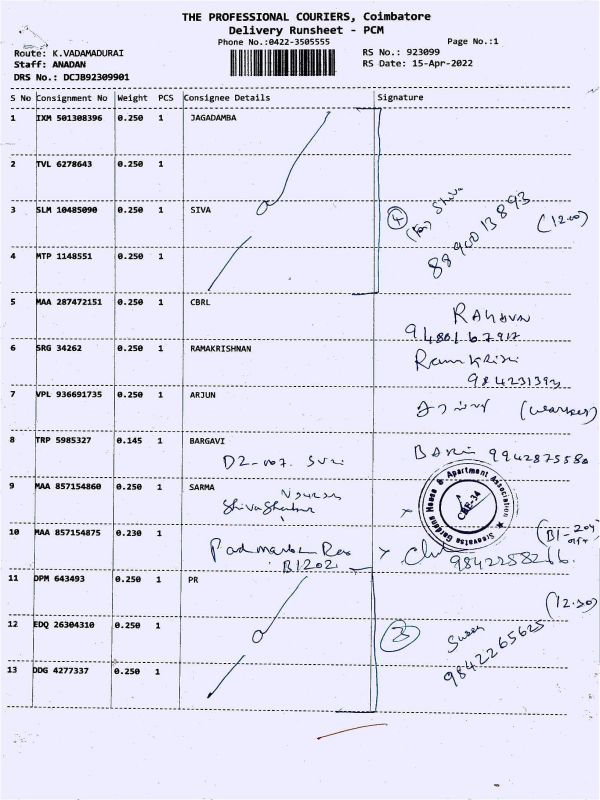 THE PROFESSIONAL COURIERS, Coimbatore
Delivery Runsheet - PCM
Phone No.:0422-3505555
Page No.:1
Route: K.VADAMADURAI
RS No.: 923099
Staff: ANADAN
RS Date: 15-Apr-2022
DRS No.: DCJB92309901
S No Consignment No Weight PCS Consignee Details Signature
1 IXM 501308396 0.250 1 JAGADAMBA
2 TVL 6278643 0.250 1
Shiva
3 SLM 10485090 0.250 1 SIVA 4 (12.00)
8890013893
4 MTP 1148551 0.250 1
5 MAA 287472151 0.250 1 CBRL
6 SRG 34262 0.250 1 RAMAKRISHNAN
7 VPL 936691735 0.250 1 ARJUN
8 TRP 5985327 0.145 1 BARGAVI
9942875580
9 MAA 857154860 0.250 1 SARMA
Sreevatsa Gardens House & Apartment Association
CBE-34
10 MAA 857154875 0.230 1
9842258266
B1202
11 DPM 643493 0.250 1 PR
(12.30)
12 EDQ 26304310 0.250 1 3
9842265625
13 DDG 4277337 0.250 1